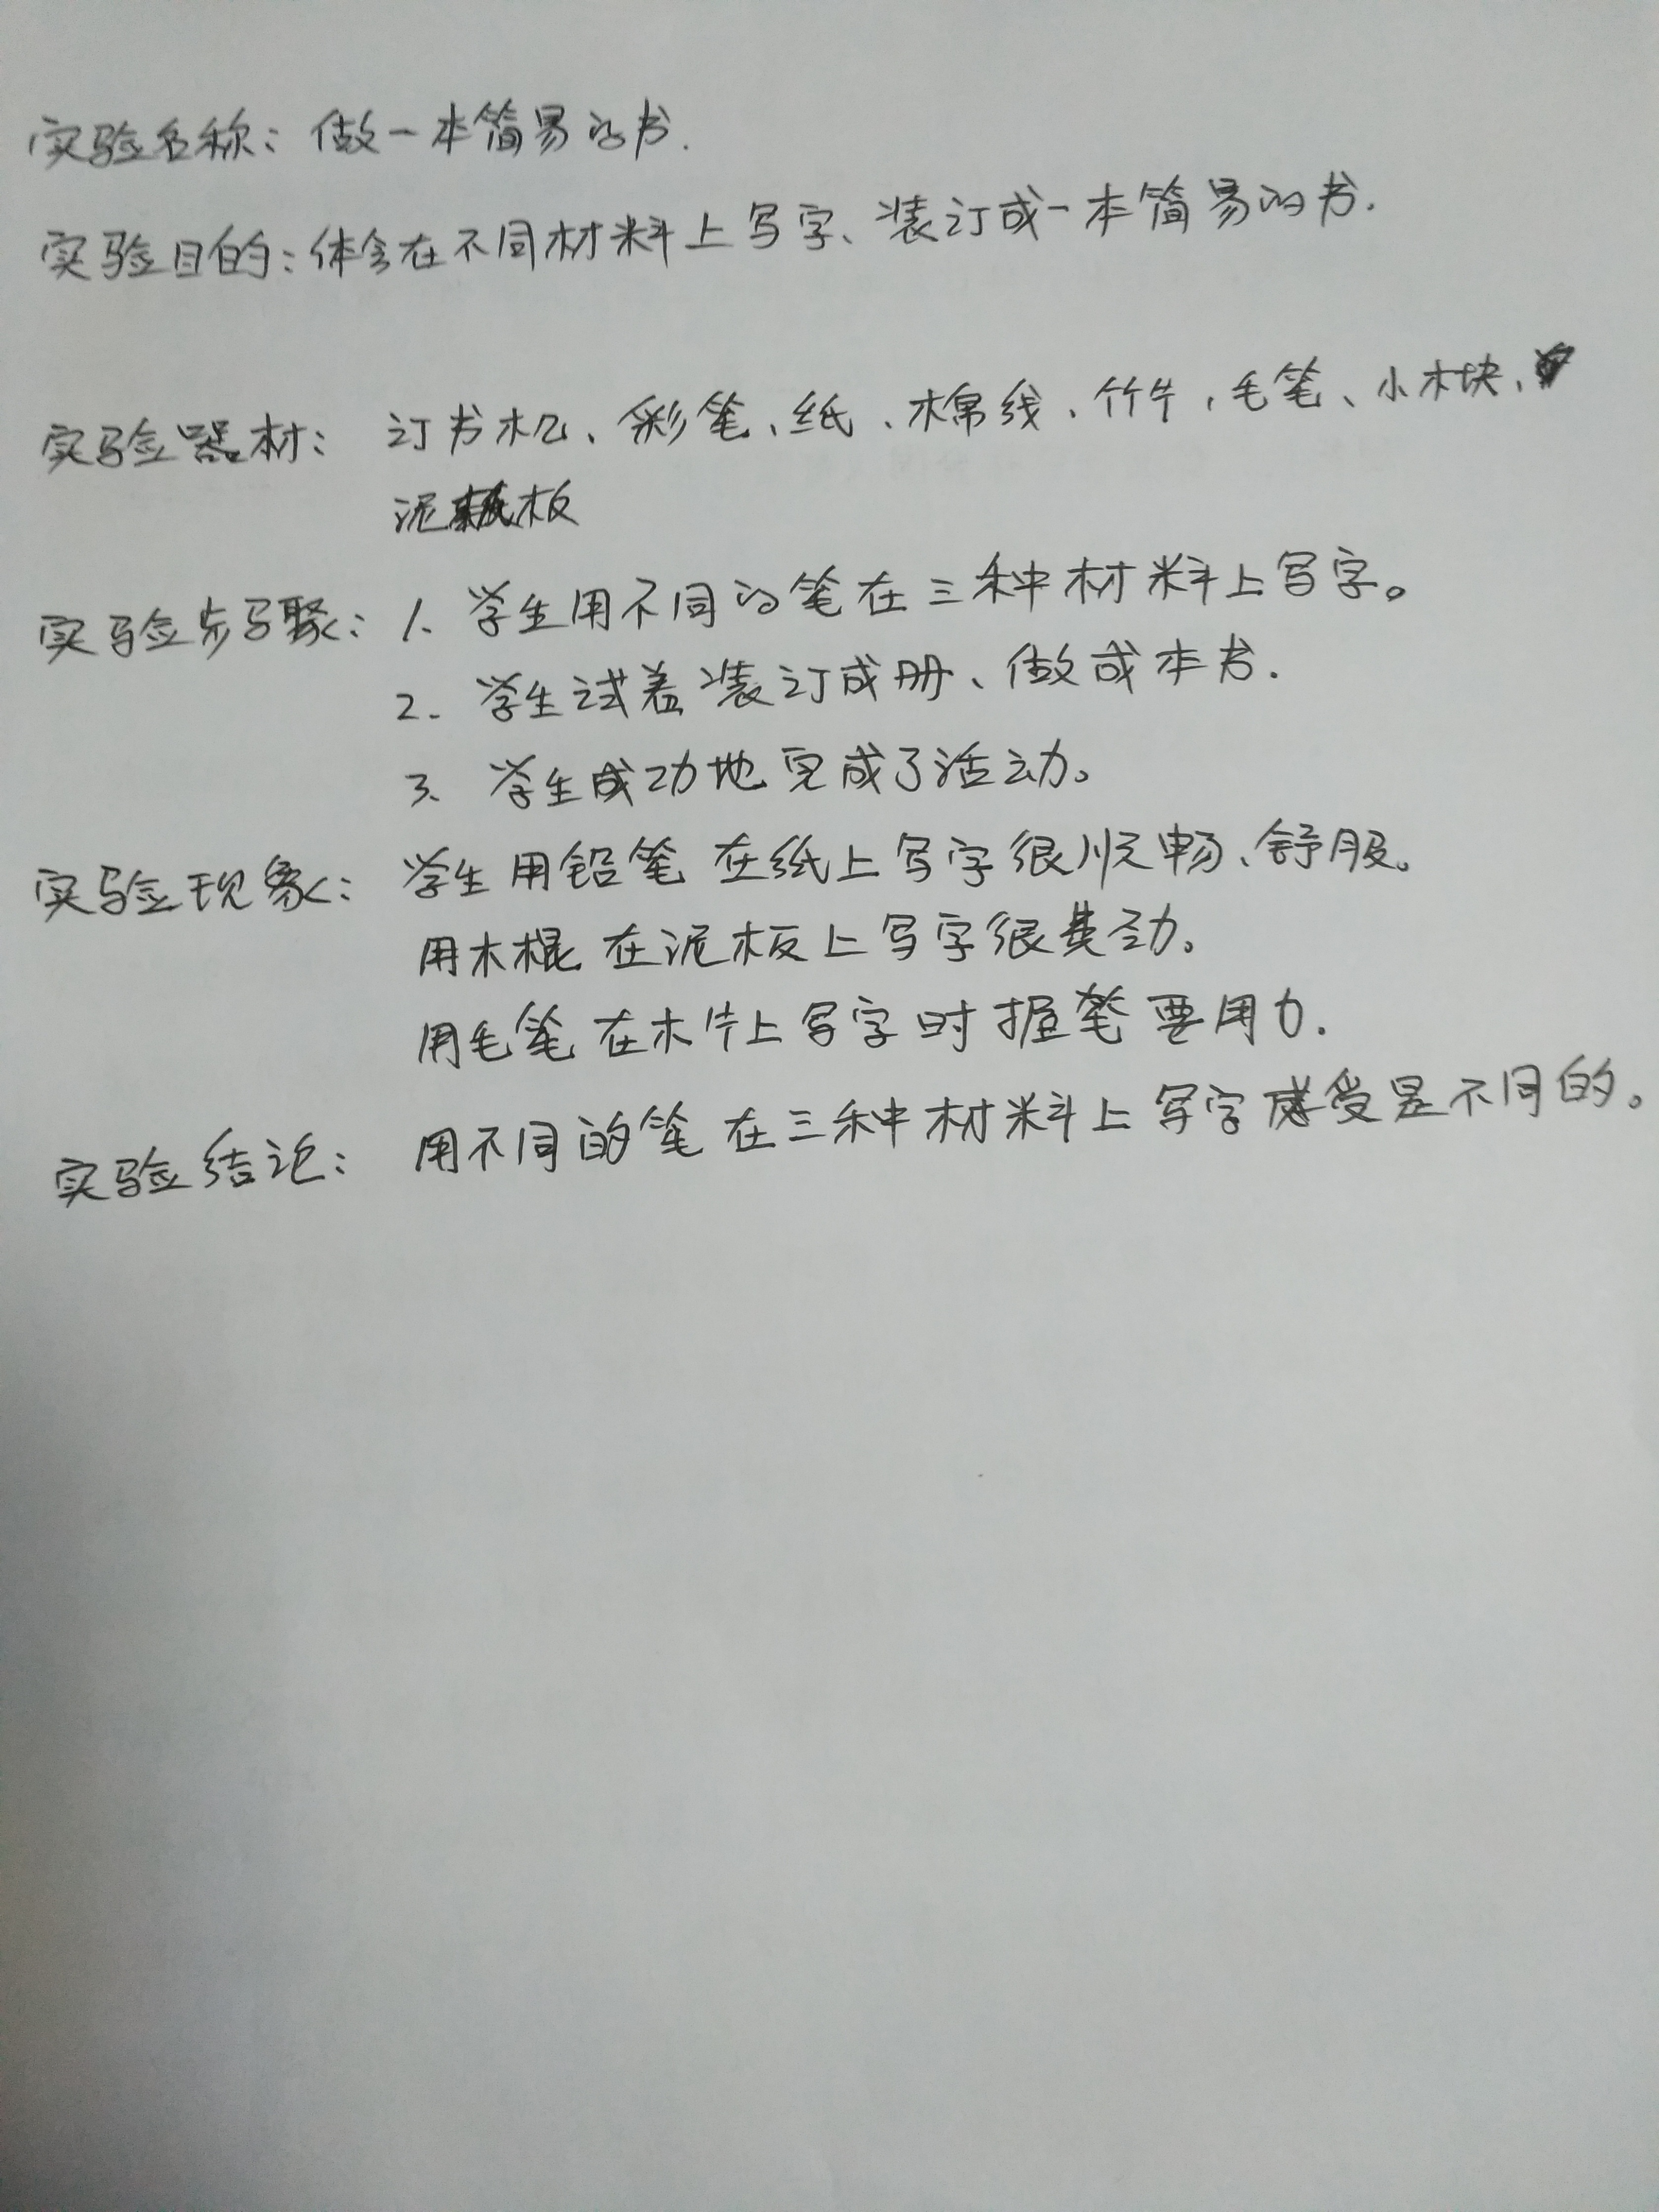 实验名称：做一本简易的书.
实验目的：体会在不同材料上写字、装订成一本简易的书.
实验器材：订书机、彩笔、纸、棉线、竹片，毛笔、小木块、
泥板
实验步骤：1、学生用不同的笔在三种材料上写字。
2. 学生试着装订成册、做成本书.
3、学生成功地完成了活动。
实验现象：学生用铅笔在纸上写字很顺畅、舒服。
用木棍在泥板上写字很费劲。
用毛笔在木片上写字时握笔要用力.
实验结论：用不同的笔在三种材料上写字感受是不同的。